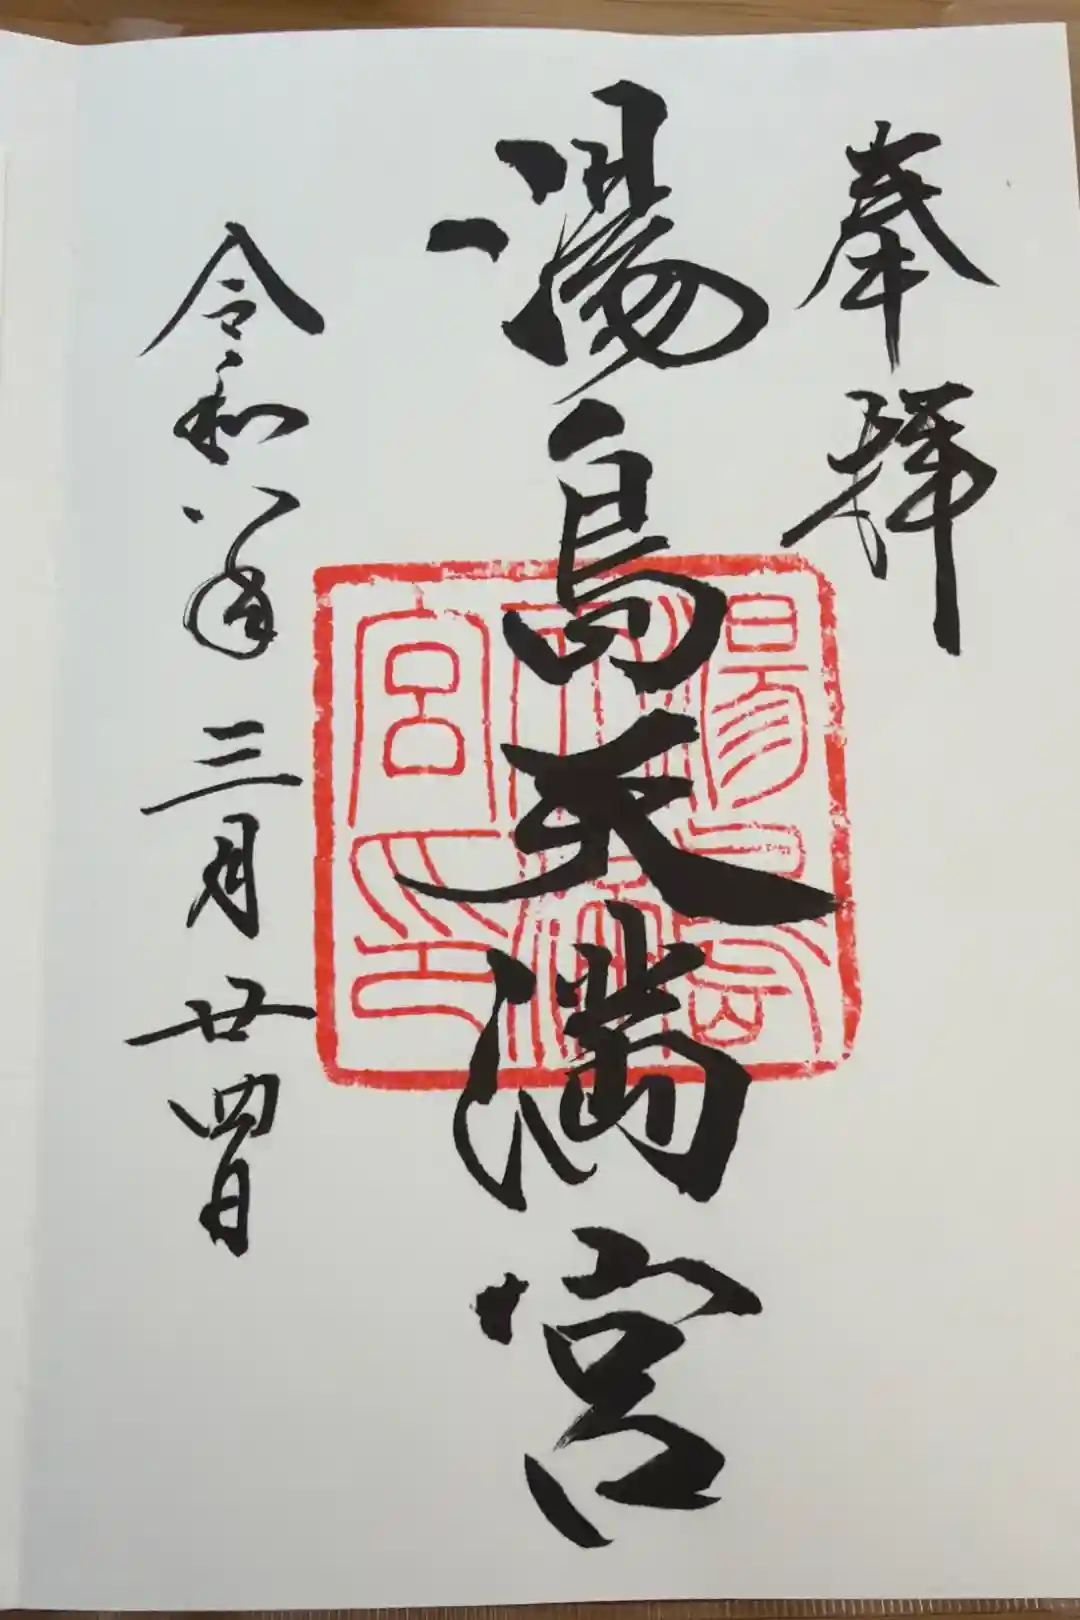 奉拝
湯島天満宮
令和八年三月廿四日
湯島天満宮印